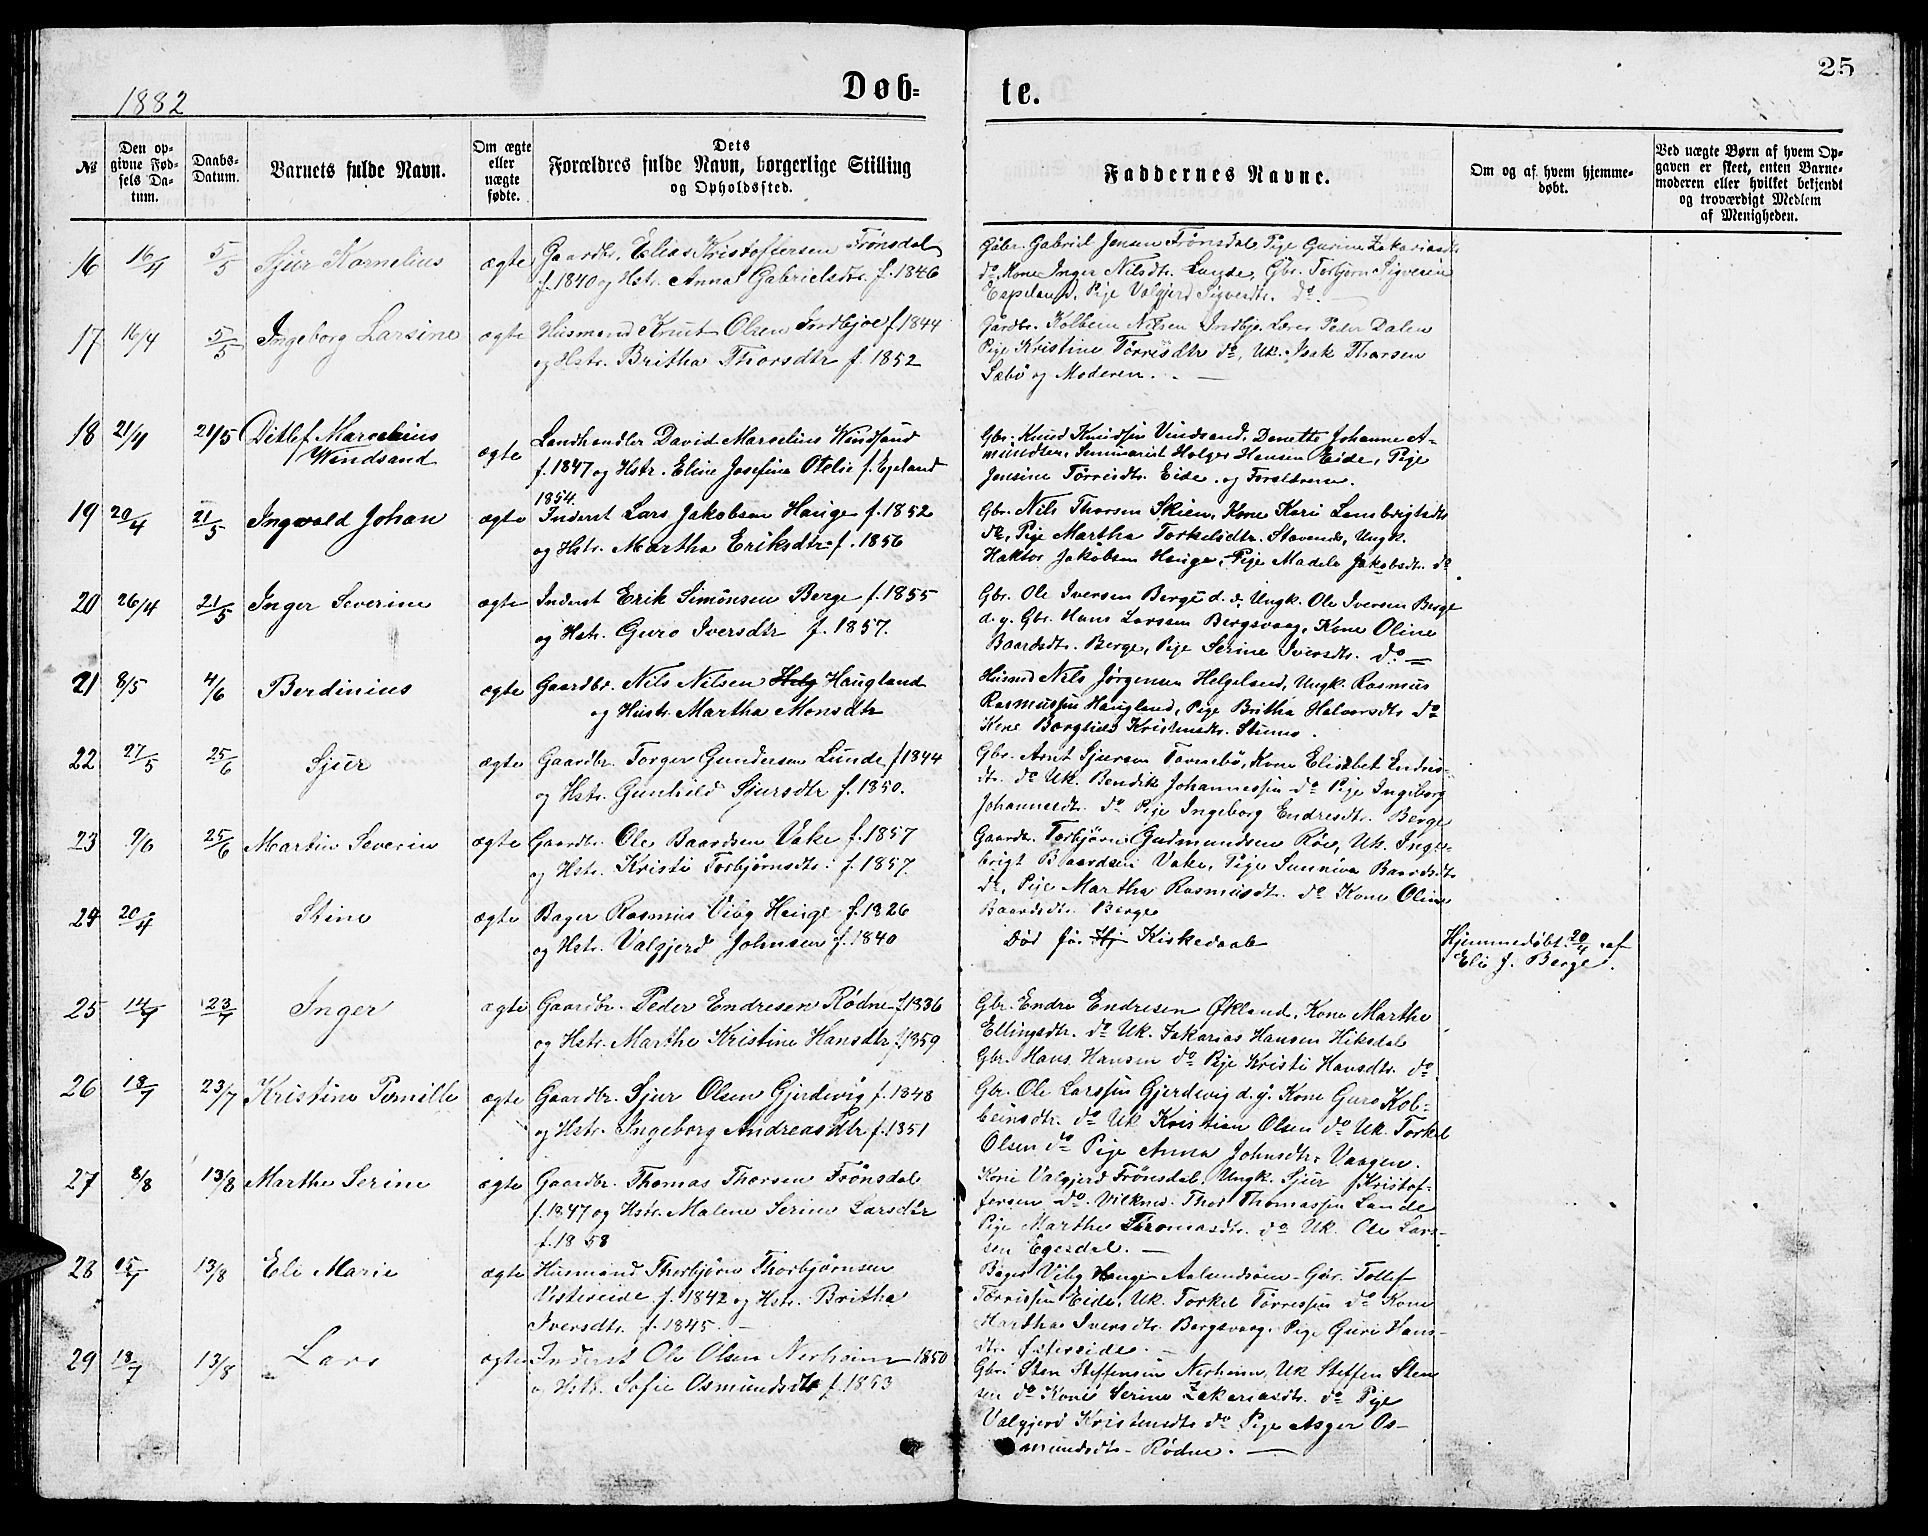 1882
Døb-
te.
25
№
Den op-
givne Fød-
sels Da-
tum.
Daabs-
Datum.
Barnets fulde Navn.
Om ægte
eller
uægte
fødte.
Dets
Forældres fulde Navn, borgerlige Stilling
og Opholdssted.
Faddernes Navne.
Om og af hvem hjemme-
døbt.
Ved uægte Børn af hvem Op-
gaven er skeet, enten Barne-
moderen eller hvilket bekjendt
og troværdigt Medlem
af Menigheden.
16 16/4 5/5 Sjur Kornelius ægte Gaardbr. Elias Kristoffersen Frønsdal
f. 1840 og Hstr. Anna Gabrielsdtr. f. 1846
Gbr. Gabriel Jensen Frønsdal, Pige Gurine Zakariasdtr.
do, Kone Inger Nilsdtr. Lunde, Gbr. Torbjørn Sigvesen
Espeland, Pige Valgjerd Sigvesdtr. do. —
17 16/4 5/5 Ingeborg Larsine ægte Husmand Knut Olsen Indbjoe f. 1844
og Hstr. Britha Thorsdtr f. 1852
Gårdbr. Kolbein Nilsen Indbjo, Lærer Peder Dalen
Pige Kristine Tørresdtr do, Uk. Isak Thorsen
Sæbö og Moderen. —
18 21/4 21/5 Ditlef Marcelius
Windsand
ægte Landhandler David Marselius Windsand
f. 1847 og Hstr. Eline Josefine Otelie f. Egeland
1854.
Gbr. Knud Knudsen Vindsand, Danette Johanne A-
mundsen, Seminarist Holger Hansen Eide, Pige
Jensine Tørresdtr. Eide og Forældrene.
19 20/4 21/5 Ingvald Johan ægte Inderst Lars Jakobsen Hauge f. 1852
og Hstr. Martha Eriksdtr f. 1856
Gbr. Nils Thorsen Skien, Kone Kari Lensbrigtsdtr
do, Pige Martha Torkelsdtr. Stavenes, Ungk.
Haktor Jakobsen Hauge, Pige Madele Jakobsdtr. do
20 26/4 21/5 Inger Severine ægte Inderst Erik Simonsen Berge f. 1855
og Hstr. Guro Iversdtr f. 1857.
Gbr. Ole Iversen Berge d. æ, Ungk. Ole Iversen Berge
d. y. Gbr. Hans Larssen Bergsvaag, Kone Oline
Baardsdtr. Berge, Pige Serine Iversdtr. do =
21 8/5 4/6 Berdinius ægte Gaardbr. Nils Nilsen Helg Haugland
og Hustr. Martha Monsdtr
Husmd Nils Jørgensen Helgeland, Ungk. Rasmus
Rasmussen Haugland, Pige Britha Halvorsdtr do
Kone Borghild Kristensdtr.
22 27/5 25/6 Sjur ægte Gaardbr. Torger Gundersen Lunde f 1844
og Hstr. Gunhild Sjursdtr f. 1850.
Gbr. Arnt Sjursen Tornebö, Kone Elisabet Endres-
dtr. do Uk. Bendik Johannessen do Pige Ingeborg
Johannesdtr. do Pige Ingeborg Endresdtr. Berge
23 9/6 25/6 Martin Severin ægte Gaardbr. Ole Baardsen Vake f. 1857
og Hstr. Kristi Torbjørnsdtr. f. 1857.
Gaardbr. Torbjørn Gudmundsen Röe, Uk. Inge-
brigt Baardsen Vake, Pige Sunniva Baardsdtr.
do, Pige Martha Rasmusdtr. do Kone Oline
Baardsdtr. Berge
24 20/4 Stine ægte Bager Rasmus Viby Hauge f. 1826
og Hstr. Valgjerd Johnsen f. 1840
Død før Hj Kirkedaab
Hjemmedøbt 20/4 af
Eli J. Berge.
25 14/7 23/7 Inger ægte Gaardbr. Peder Endresen Rödne f. 1836
og Hstr. Marthe Kristine Hansdtr f. 1859
Gbr. Endre Endresen Økland, Kone Marthe
Ellingsdtr. do Uk. Zakarias Hansen Hiksdal
Gbr. Hans Hansen do Pige Kristi Hansdtr. do
26 18/7 23/7 Kristine Pernille ægte Gaardbr. Sjur Olsen Gjerdevig f. 1848
og Hstr. Ingeborg Andreasdtr f. 1851
Gbr. Ole Larssen Gjerdevig d. y. Kone Guro Kol-
beinsdtr. do Uk Kristian Olsen do Uk. Torkel
Olsen do Pige Anna Johnsdtr. Vaagen.
27 8/8 13/8 Marthe Serine ægte Gaardbr. Thomas Thorsen Frønsdal
f. 1847 og Hstr. Malene Serine Larsdtr
f. 1858
Kone Valgjerd Frønsdal, Ungk. Sjur Kristof-
fersen do. Thor Thomassen Lande
Pige Marthe Thomasdtr. do Uk. Ole Lars-
sen Egesdal. —
28 15/7 13/8 Eli Marie ægte Husmand Thorbjørn Thorbjørnsen
Østereide f. 1842 og Hstr. Britha
Iversdtr. f. 1845. —
Bager Viby Hauge Gbr. Tollef
Tørressen Eide, Uk. Torkel Tørressen do Kone
Martha Iversdtr. Bergsvaag, Pige Guri Hans-
dtr. Østereide. —
29 18/7 13/8 Lars ægte Inderst Ole Olsen Nerheim 1850
og Hstr. Sofie Osmundsdtr f. 1853
Gbr. Sten Steffensen Nerheim, Uk Steffen Sten
sen do Kone Serine Zakariasdtr. do Pige
Valgjerd Kristensdtr do Pige Asger Os-
mundsdtr. Rödne. —